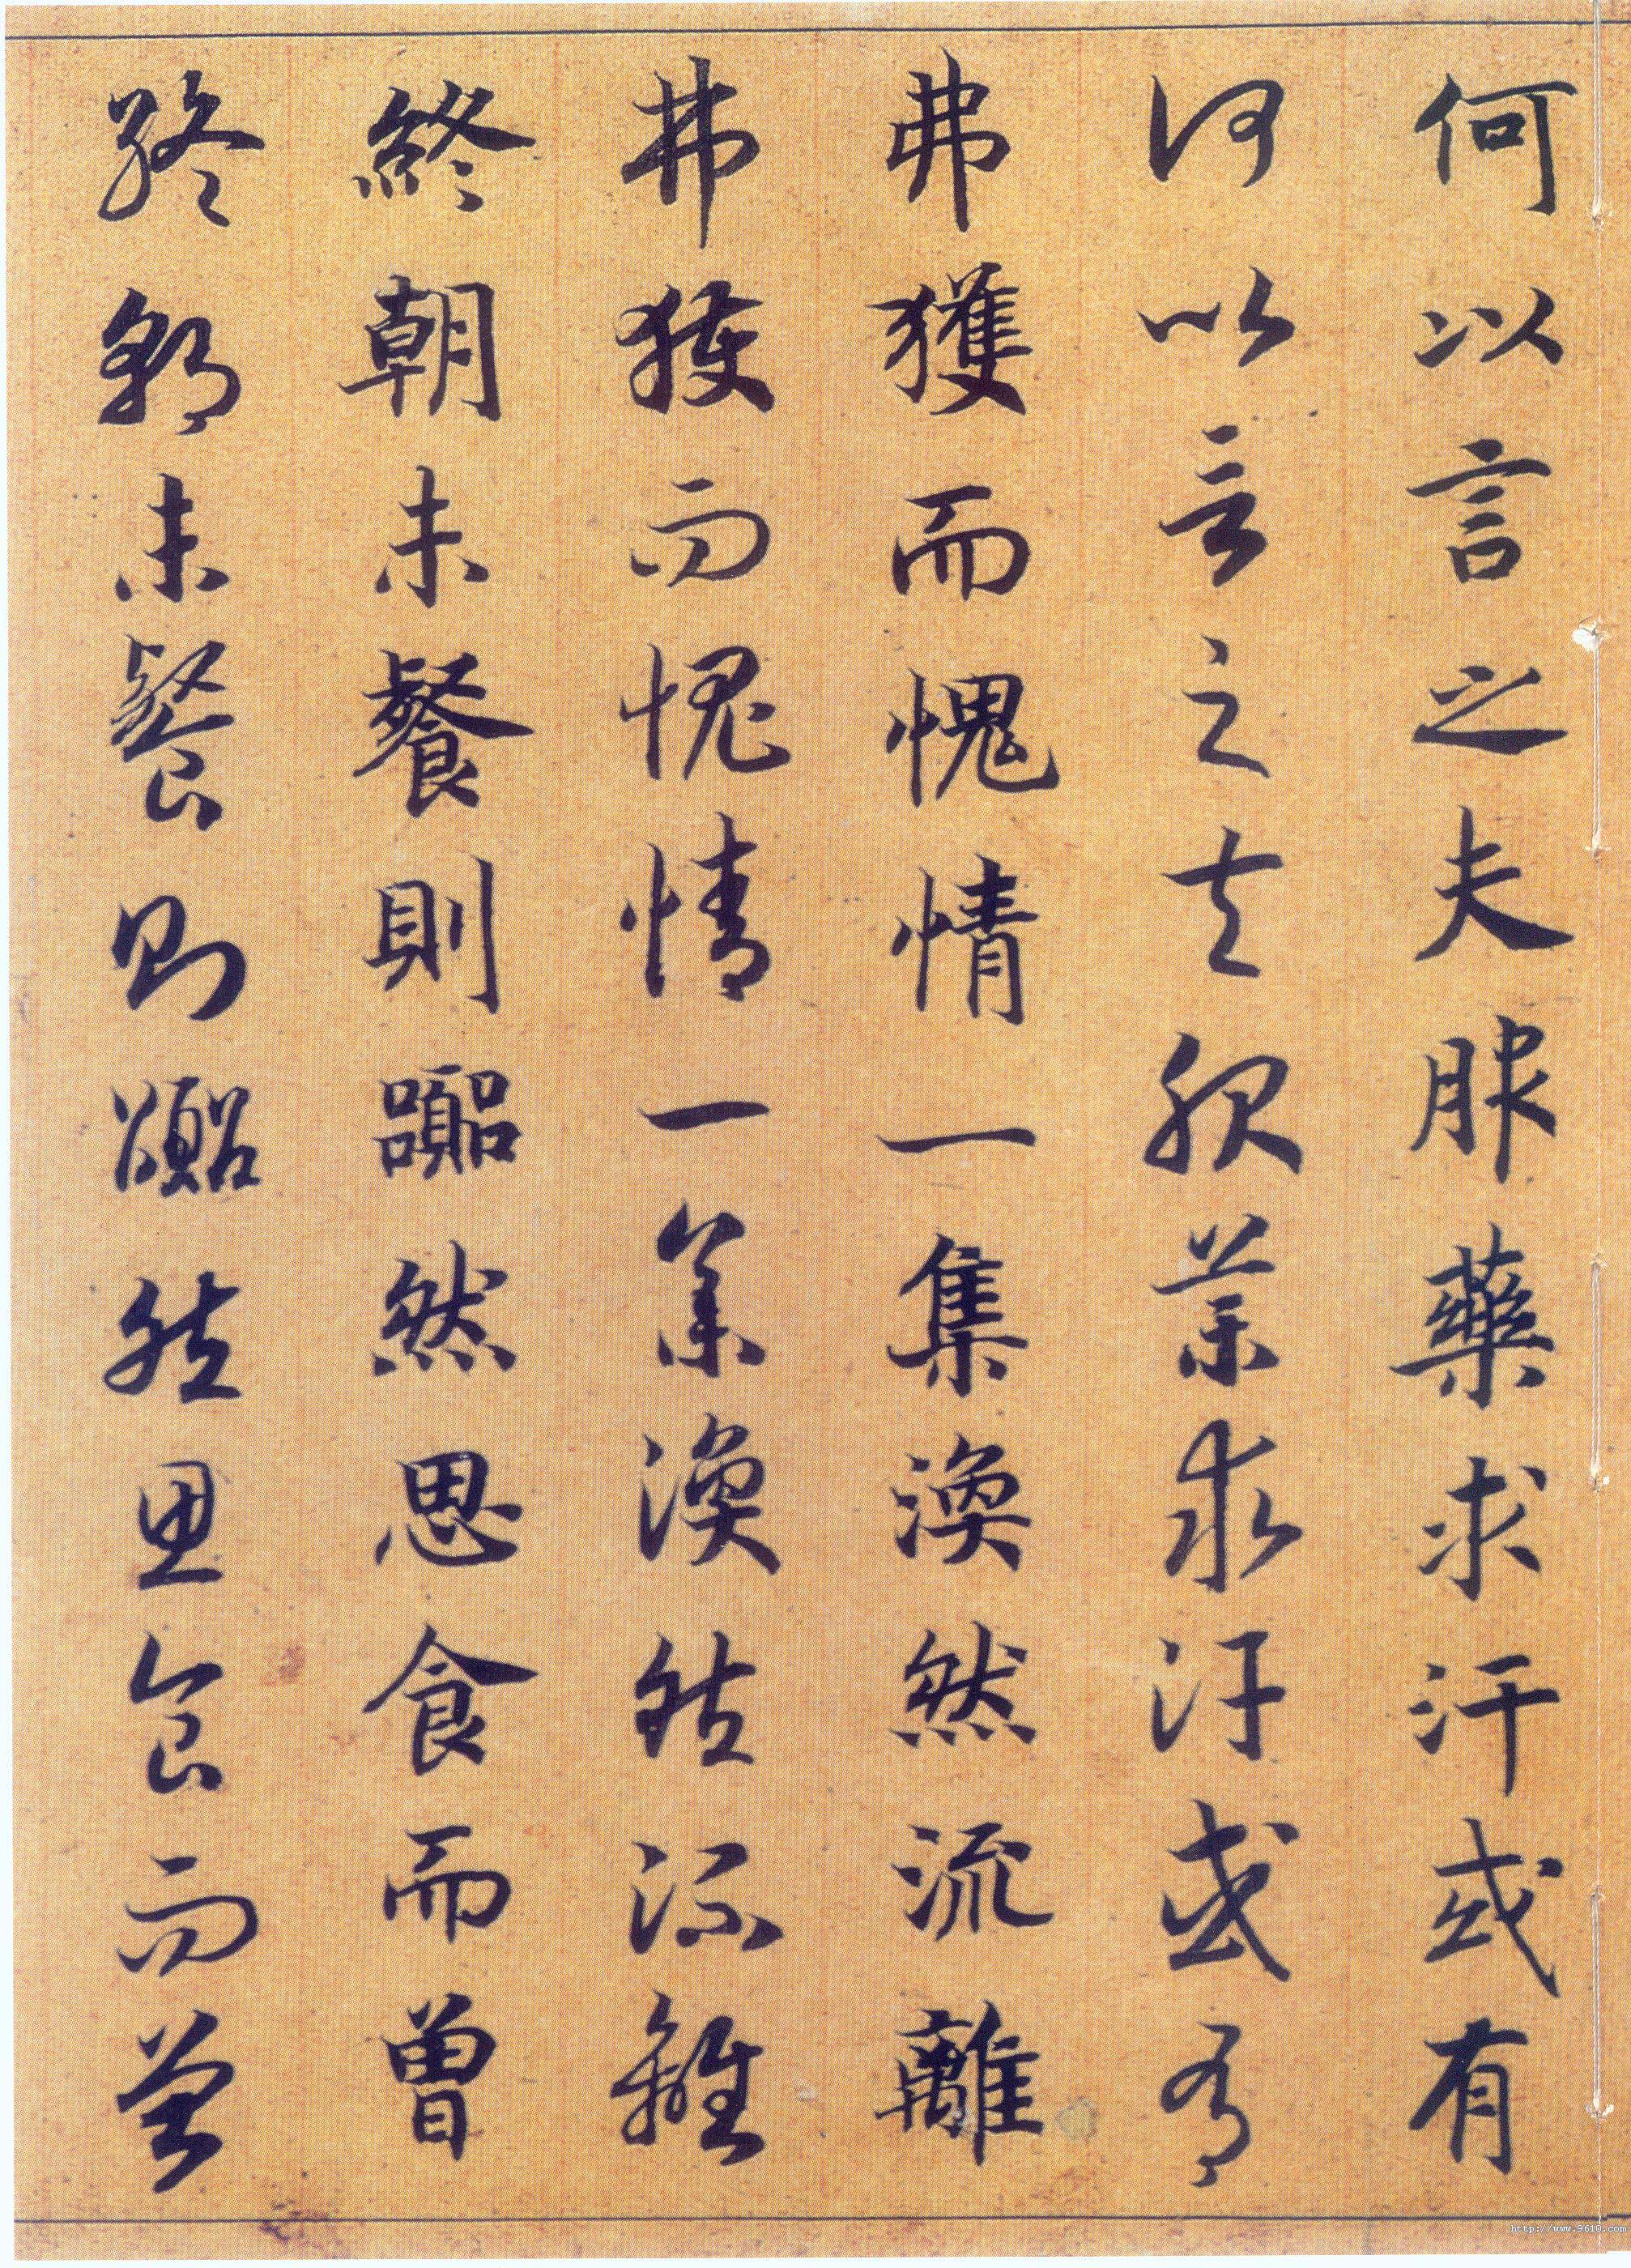 何以言之夫服藥求汗或有
何以言之夫服藥求汗或有
弗獲而愧情一集渙然流離
弗獲而愧情一集渙然流離
終朝未餐則嚻然思食而曾
終朝未餐則嚻然思食而曾
http://www.9610.com